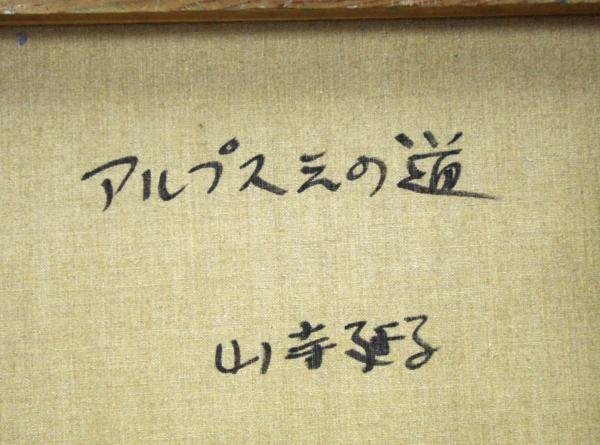 アルプスえの道
山寺延子